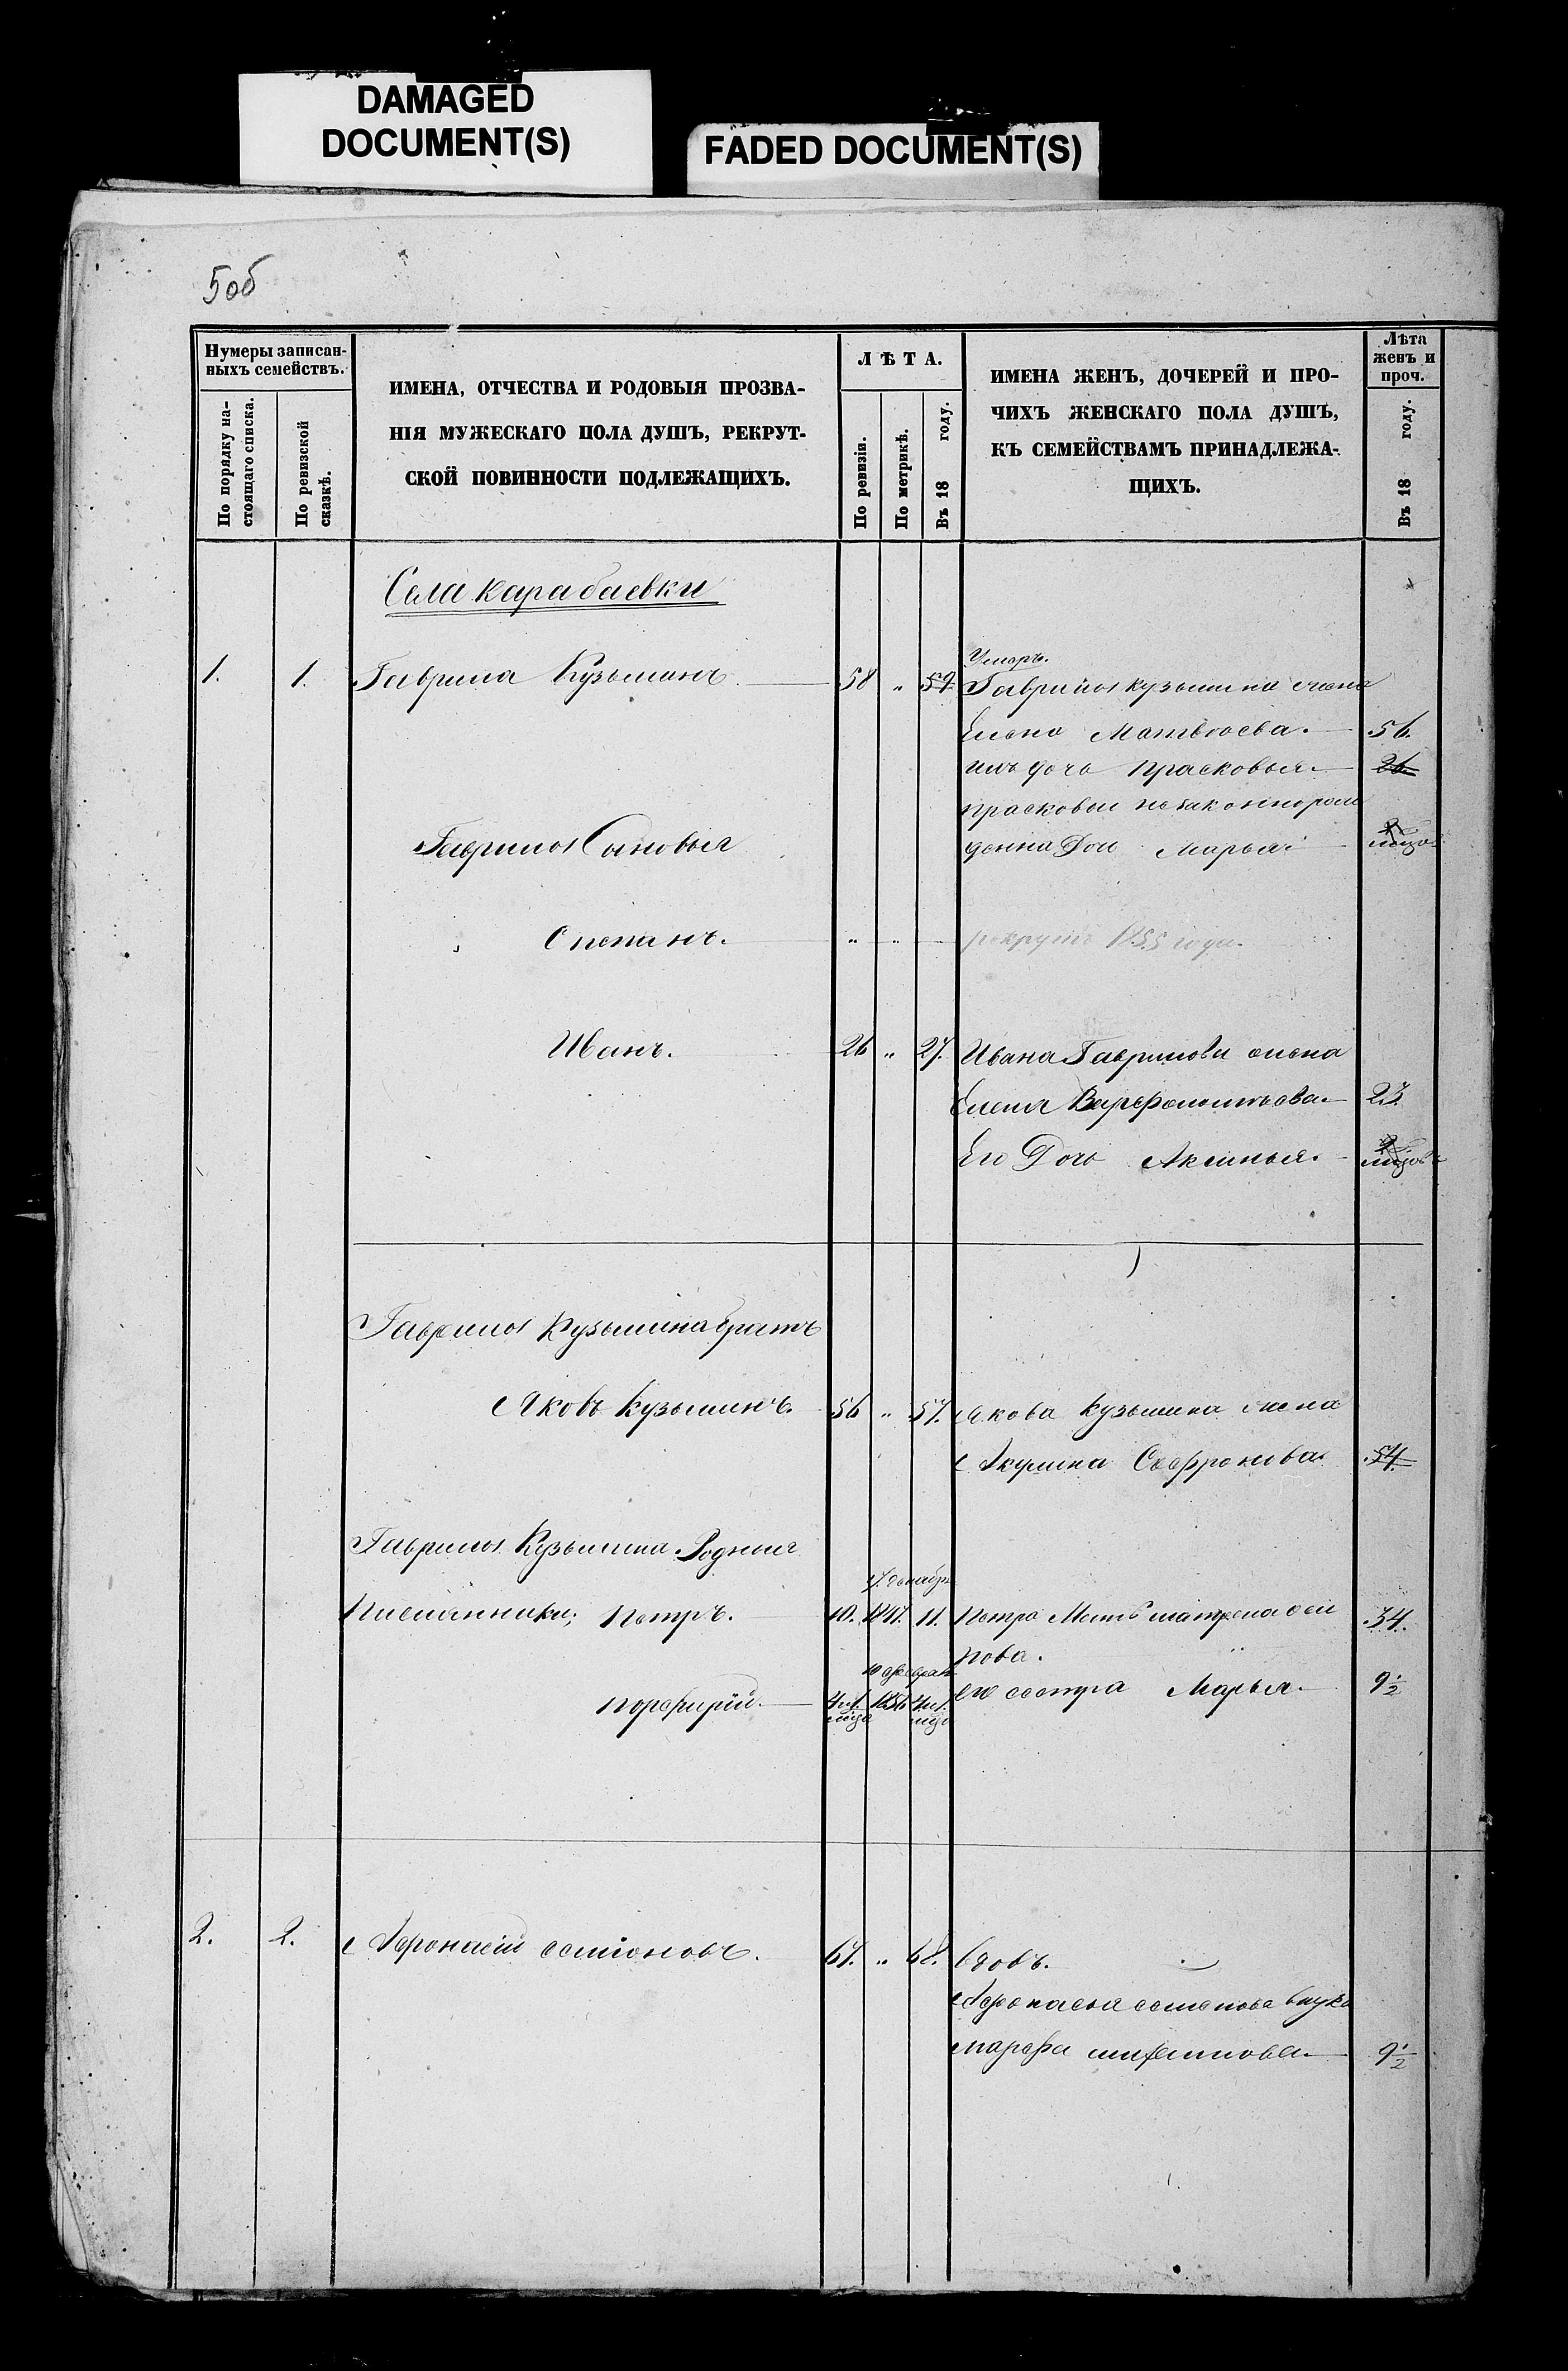 DAMAGED
DOCUMENT(S)
FADED DOCUMENT(S)
5об
Нумеры записан-
ныхъ семействъ.
По порядку на-
стоящаго списка.
По ревизской
сказкѣ.
ИМЕНА, ОТЧЕСТВА И РОДОВЫЯ ПРОЗВА-
НІЯ МУЖЕСКАГО ПОЛА ДУШЪ, РЕКРУТ-
СКОЙ ПОВИННОСТИ ПОДЛЕЖАЩИХЪ.
ЛѢТА.
По ревизіи.
По метрикѣ.
Въ 18 году.
ИМЕНА ЖЕНЪ, ДОЧЕРЕЙ И ПРО-
ЧИХЪ ЖЕНСКАГО ПОЛА ДУШЪ,
КЪ СЕМЕЙСТВАМЪ ПРИНАДЛЕЖА-
ЩИХЪ.
Лѣта
женъ и
проч.
Въ 18 году.
Села Карабаевки
Умеръ.
1. 1. Гаврила Кузьминъ 58 „ 59 Гаврилы кузьмина жена
Елена Матвѣева. 56.
ихъ дочь Прасковья 26
Прасковьи незаконнорож
Гаврилы Сыновья денна Доч Марья
Степанъ. „ „ рекрутъ 1855 года.
Иванъ. 26 „ 27. Ивана Гаврилова жена
Елена Варфоломѣева 23.
Его Дочь Аксинья.
Гаврилы Кузьмина братъ
Яковъ Кузьминъ. 56 „ 57. Якова Кузьмина жена
Акулина Сафронова 54.
Гаврилы Кузьмина Родные
17. декабря
Племянники; Петръ. 10. 1847. 11. Петра Мать матрена Оси 34.
пова.
10 феврал
его сестра Марья 9 1/2
порфирій. 1856
2. 2. Афонасій семіоновъ. 67. „ 68. вдовъ.
Афонасья семенова внука
марфа 9 1/2